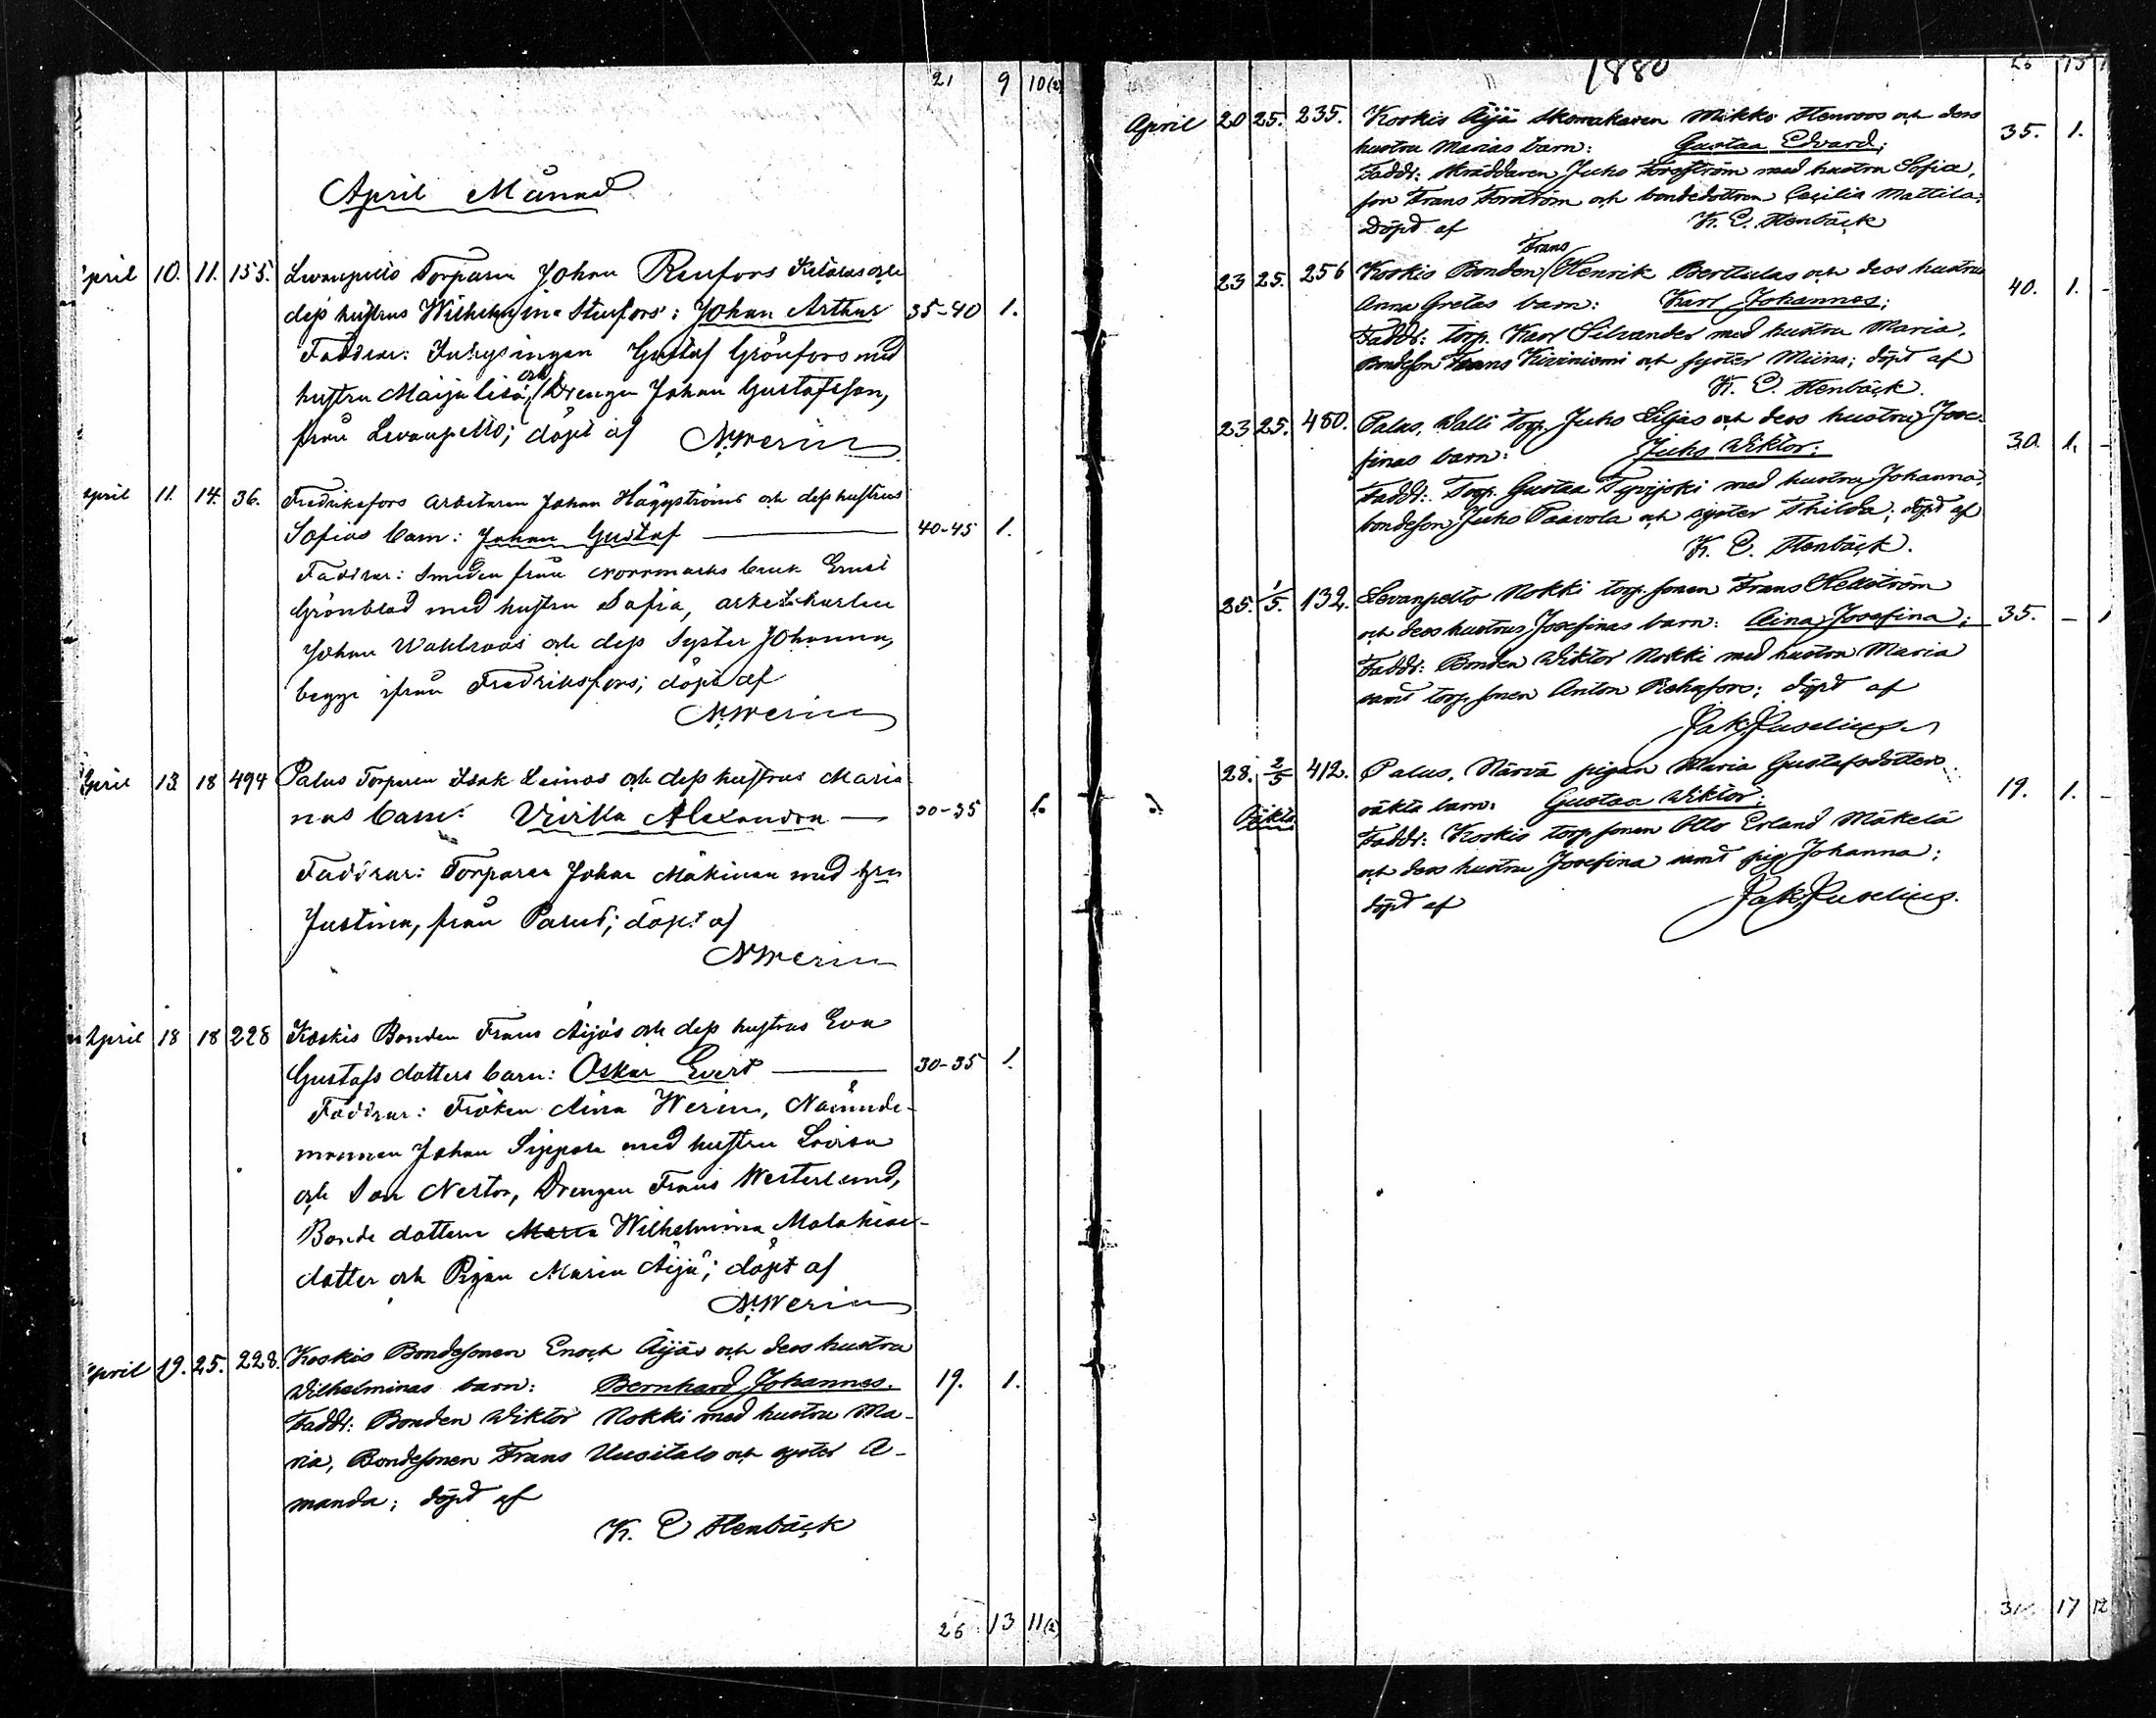 21 9 10(2)
April Månad
April 10. 11. 155. Levanpelto Torparen Johan Renfors och
dess hustrus Wilhelmina : Johan Arthur 35-40 1.
Faddrar: Gustaf Grönfors med
hustru Maija Lisa, och Drengen Johan Gustafsson,
från Levanpelto; döpt af N. Werin
April 11. 14. 36. Fredriksfors arbetaren Johan Häggströms och dess hustrus
Sofias barn: Johan Gustaf 40-45 1.
Faddrar: Smeden från Norrmarks bruk Ernst
Grönblad med hustru Sofia, arbetskarlen
Johan Wahlroos och dess Syster Johanna,
begge ifrån Fredriksfors; döpt af
N. Werin
April 13 18 494 Palus Torparen Isak Leinos och dess hustrus Maria-
nas barn: Alexandra 30-35 1.
Faddrar: Torparen Johan Mäkinen med hru
Justina, från Palus; döpt af
N. Werin
April 18 18 228 Koskis Bonden Frans Äijäs och dess hustrus Eva
Gustafsdotters barn: Oskar Evert 30-35 1.
Faddrar: Fröken Aina Werin, Nämnde-
mannen Johan Sippola med hustru Lovisa
och Son Nestor, Drengen Frans Westerlund,
Bonde dottern Maria Wilhelmina
dotter och Pigan Maria Äijä; döpt af
N. Werin
April 19. 25. 228. Koskis Bondesonen Enoch Äijäs och dess hustru
Wilhelminas barn: Bernhard Johannes. 19. 1.
Faddr: Bonden Wiktor Nokki med hustru Ma-
ria, Bondesonen Frans Uusitalo och syster A-
manda; döpt af
K. E. Stenbäck
26 13 11(2)
1880
26 13
April 20 25. 235. Koskis Äijä Skomakaren Mikko Stenroos och dess
hustru Marias barn: Gustaa Edvard; 35. 1.
Faddr: Skräddaren Juho Forsström med hustru Sofia,
son Frans Forström och bondedottren Cecilia Mattila;
Döpt af K. E. Stenbäck
Frans
23 25. 256 Koskis Bonden Henrik Berttulas och dess hustru
Anna Gretas barn: Karl Johannes; 40. 1. -
Faddr: torp. Karl Silvander med hustru Maria,
Bondeson Frans Kiviniemi och syster Miina; döpt af
K. E. Stenbäck.
23 25. 480. Palus, Walli Torp. Juho Liljas och dess hustru Jose-
finas barn: Juho Wiktor: 30. 1. -
Faddr: Torp. Gustaa med hustru Johanna,
bondeson Juho Paavola och syster Thilda; döpt af
K. E. Stenbäck.
25. 1/5. 132. Levanpelto Nokki torp. sonen Frans Hellström
och dess hustrus Josefinas barn: Aina Josefina; 35. - 1
Faddr: Bonden Wiktor Nokki med hustru Maria
samt torp. sonen Anton; döpt af
Jak. Juselius
28. 2/5 412. Palus, Närvä pigan Maria Gustafsdotters
oäkta barn: Gustaa Wiktor; 19. 1. -
Oäkta
Faddr: Koskis torp. sonen Otto Erland Mäkelä
och dess hustru Josefina samt pig. Johanna;
döpt af Jak. Juselius.
31 17 12